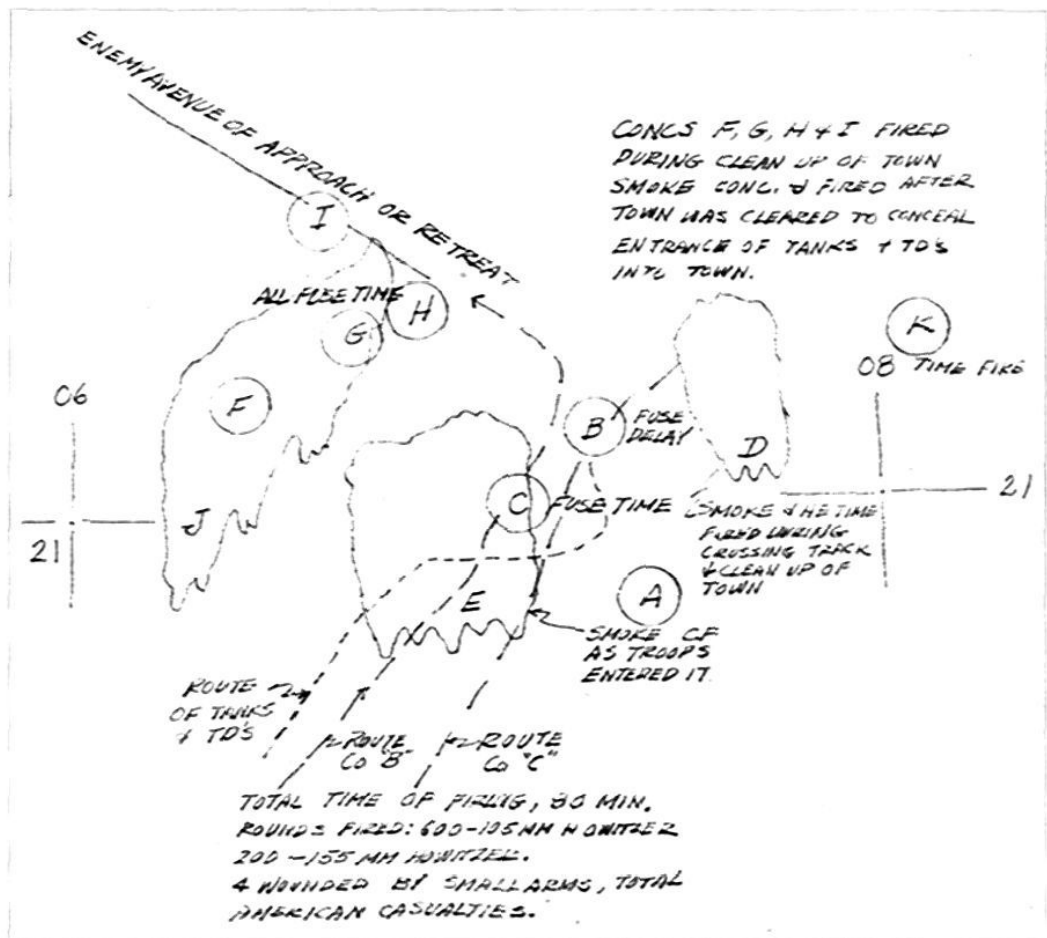 ENEMY AVENUE OF APPROACH OR RETREAT
CONCS F, G, H & I FIRED
DURING CLEAN UP OF TOWN
SMOKE CONC. FIRED AFTER
TOWN WAS CLEARED TO CONCEAL
ENTRANCE OF TANKS & TD'S
INTO TOWN.
I
ALL FUSE TIME
H
G
K
08 TIME FIRE
06
F
B FUSE
DELAY
D
C FUSE TIME
21
J
21
SMOKE & HE TIME
FIRED DURING
CROSSING TRACK
& CLEAN UP OF
TOWN
E
A
SMOKE
AS TROOPS
ENTERED IT
ROUTE
OF TANKS
& TD'S
ROUTE
Co "B"
ROUTE
Co "C"
TOTAL TIME OF FIRING, MIN.
ROUNDS FIRED: 600-105 MM HOWITZER
200-155 MM HOWITZER.
4 WOUNDED BY SMALL ARMS, TOTAL
AMERICAN CASUALTIES.